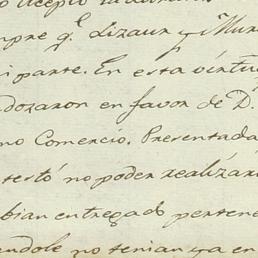 o Acepto
mpre q.e Lizaur y Mur
i parte. En esta virtu
dozaron en favor de D.
no Comercio. Presentada
testó no poder realizar
bian entregado pertene
endole no tenian ya en